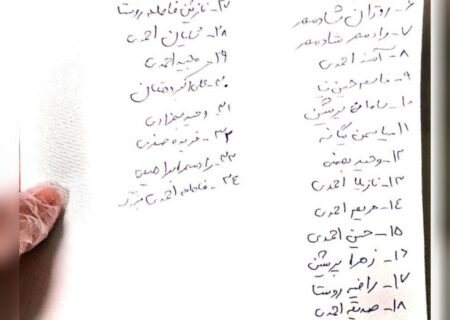 ۶- روژان شادمهر
۷- رادمهر شادمهر
۸- آمنه احمدی
۹- قاسم حسین
۱۰- سامان پرشین
۱۱- یاسمن یگانه
۱۲- وحید بهمنی
۱۳- نازیلا احمدی
۱۴- مریم احمدی
۱۵- حسین احمدی
۱۶- زهرا پرشین
۱۷- راضیه روستا
۱۸- صدیقه احمدی
۲۷- نازنین فاطمه روستا
۲۸- احمدی
۲۹- مجید احمدی
۳۰- علی اکبر دهقان
۳۱- وحید بهزادی
۳۲- فریده صفری
۳۳- رادمهر ابراهیمی
۳۴- فاطمه احمدی